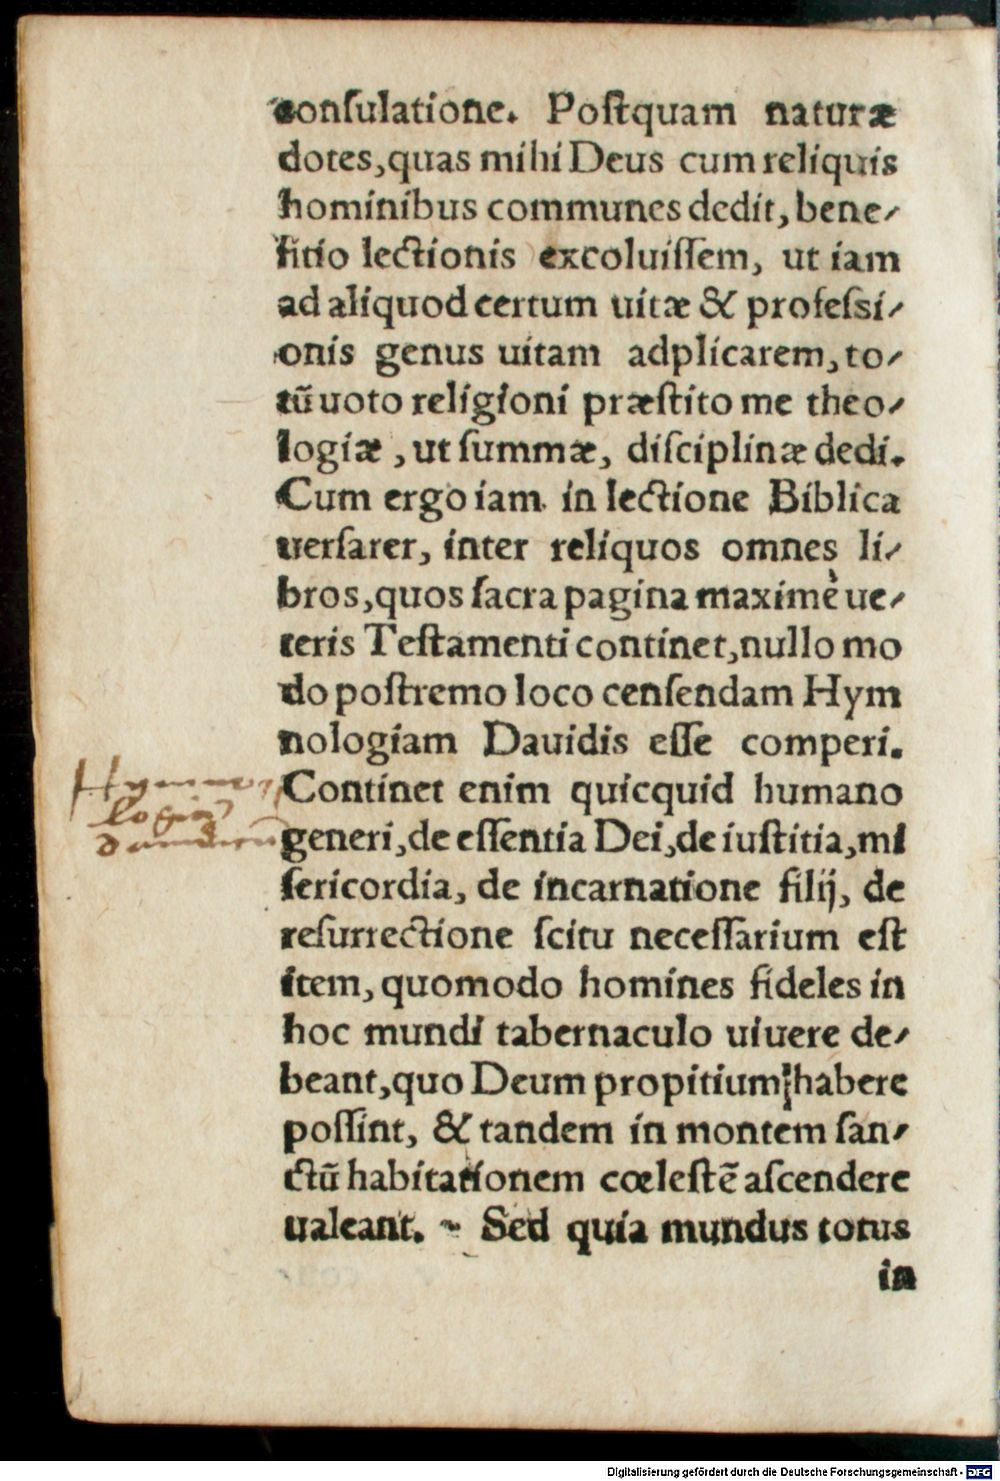 conſulatione. Poſtquam naturæ
dotes, quas mihi Deus cum reliquis
hominibus communes dedit, bene⸗
fitio lectionis excoluiſſem, ut iam
ad aliquod certum uitæ & profeſsi⸗
onis genus uitam adplicarem, to⸗
tũ uoto religioni præſtito me theo⸗
logiæ, ut ſummæ, diſciplinæ dedi.
Cum ergo iam in lectione Biblica
uerſarer, inter reliquos omnes li⸗
bros, quos ſacra pagina maximè ue⸗
teris Teſtamenti continet, nullo mo
do poſtremo loco cenſendam Hym
nologiam Dauidis eſſe comperi.
Continet enim quicquid humano
generi, de eſſentia Dei, de iuſtitia, mi
ſericordia, de incarnatione filij, de
reſurrectione ſcitu neceſſarium eſt
item, quomodo homines fideles in
hoc mundi tabernaculo uiuere de⸗
beant, quo Deum propitium habere
poſſint, & tandem in montem ſan⸗
ctũ habitationem cœleſtẽ aſcendere
ualeant. ~ Sed quia mundus totus
in
Hymno⸗
logia
Digitalisierung gefördert durch die Deutsche Forschungsgemeinschaft - DFG